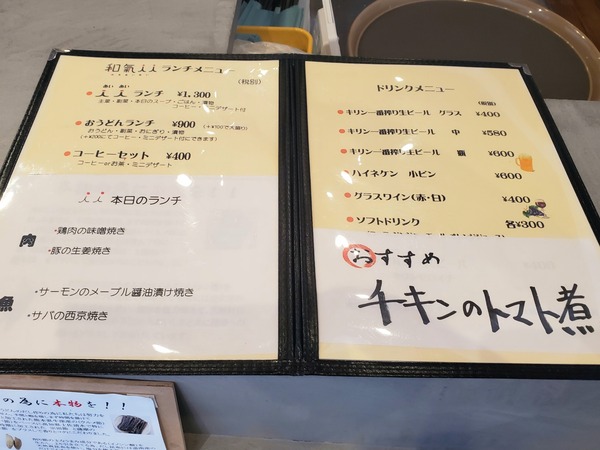 和氣 i i ランチメニュー
(税別)
あい あい
i i ランチ ¥1,300
主菜・副菜・本日のスープ・ごはん・漬物
コーヒー・ミニデザート付
おうどんランチ ¥900 (+¥100で大盛り)
おうどん・副菜・おにぎり・漬物
(+¥200にてコーヒー・ミニデザート付にできます)
コーヒーセット ¥400
コーヒーorお茶・ミニデザート
i i 本日のランチ
肉
・鶏肉の味噌焼き
・豚の生姜焼き
魚
・サーモンのメープル醤油漬け焼き
・サバの西京焼き
ドリンクメニュー
(税別)
キリン一番搾り生ビール グラス ¥400
キリン一番搾り生ビール 中 ¥580
キリン一番搾り生ビール 瓶 ¥600
ハイネケン 小ビン ¥600
グラスワイン(赤・白) ¥400
ソフトドリンク 各¥300
おすすめ
チキンのトマト煮
の為に本物を!!